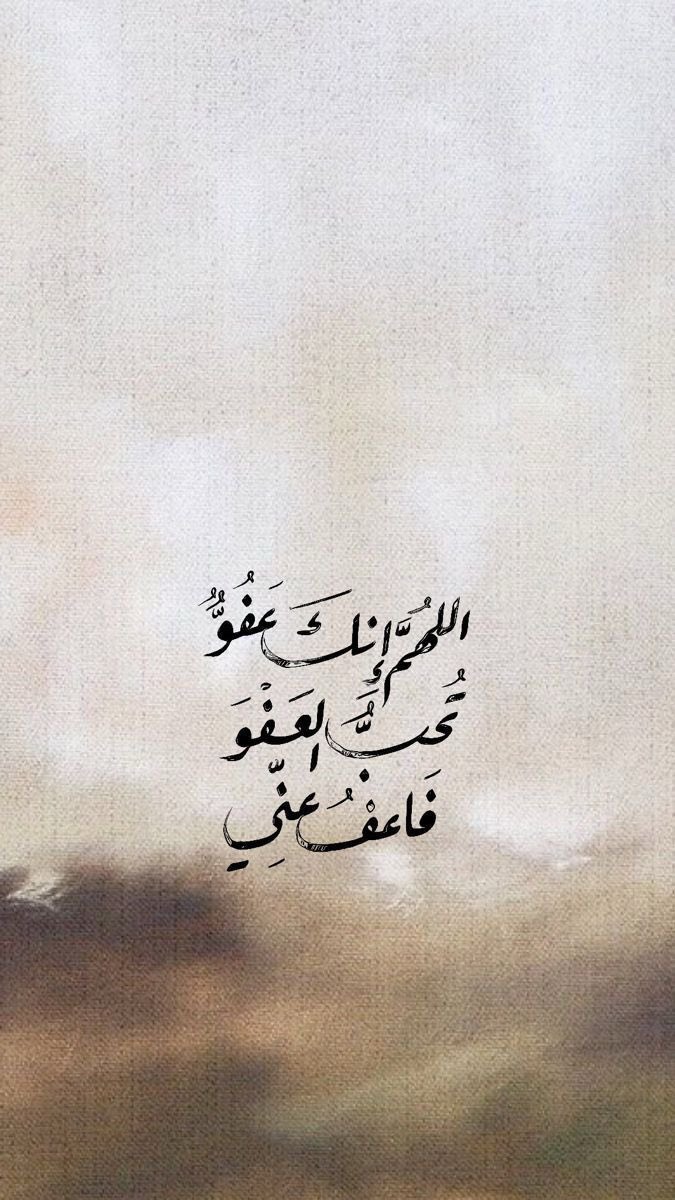 اللهُمَّ إِنكَ عَفُوٌّ
تُحبُّ العَفْوَ
فَاعفُ عنِّي